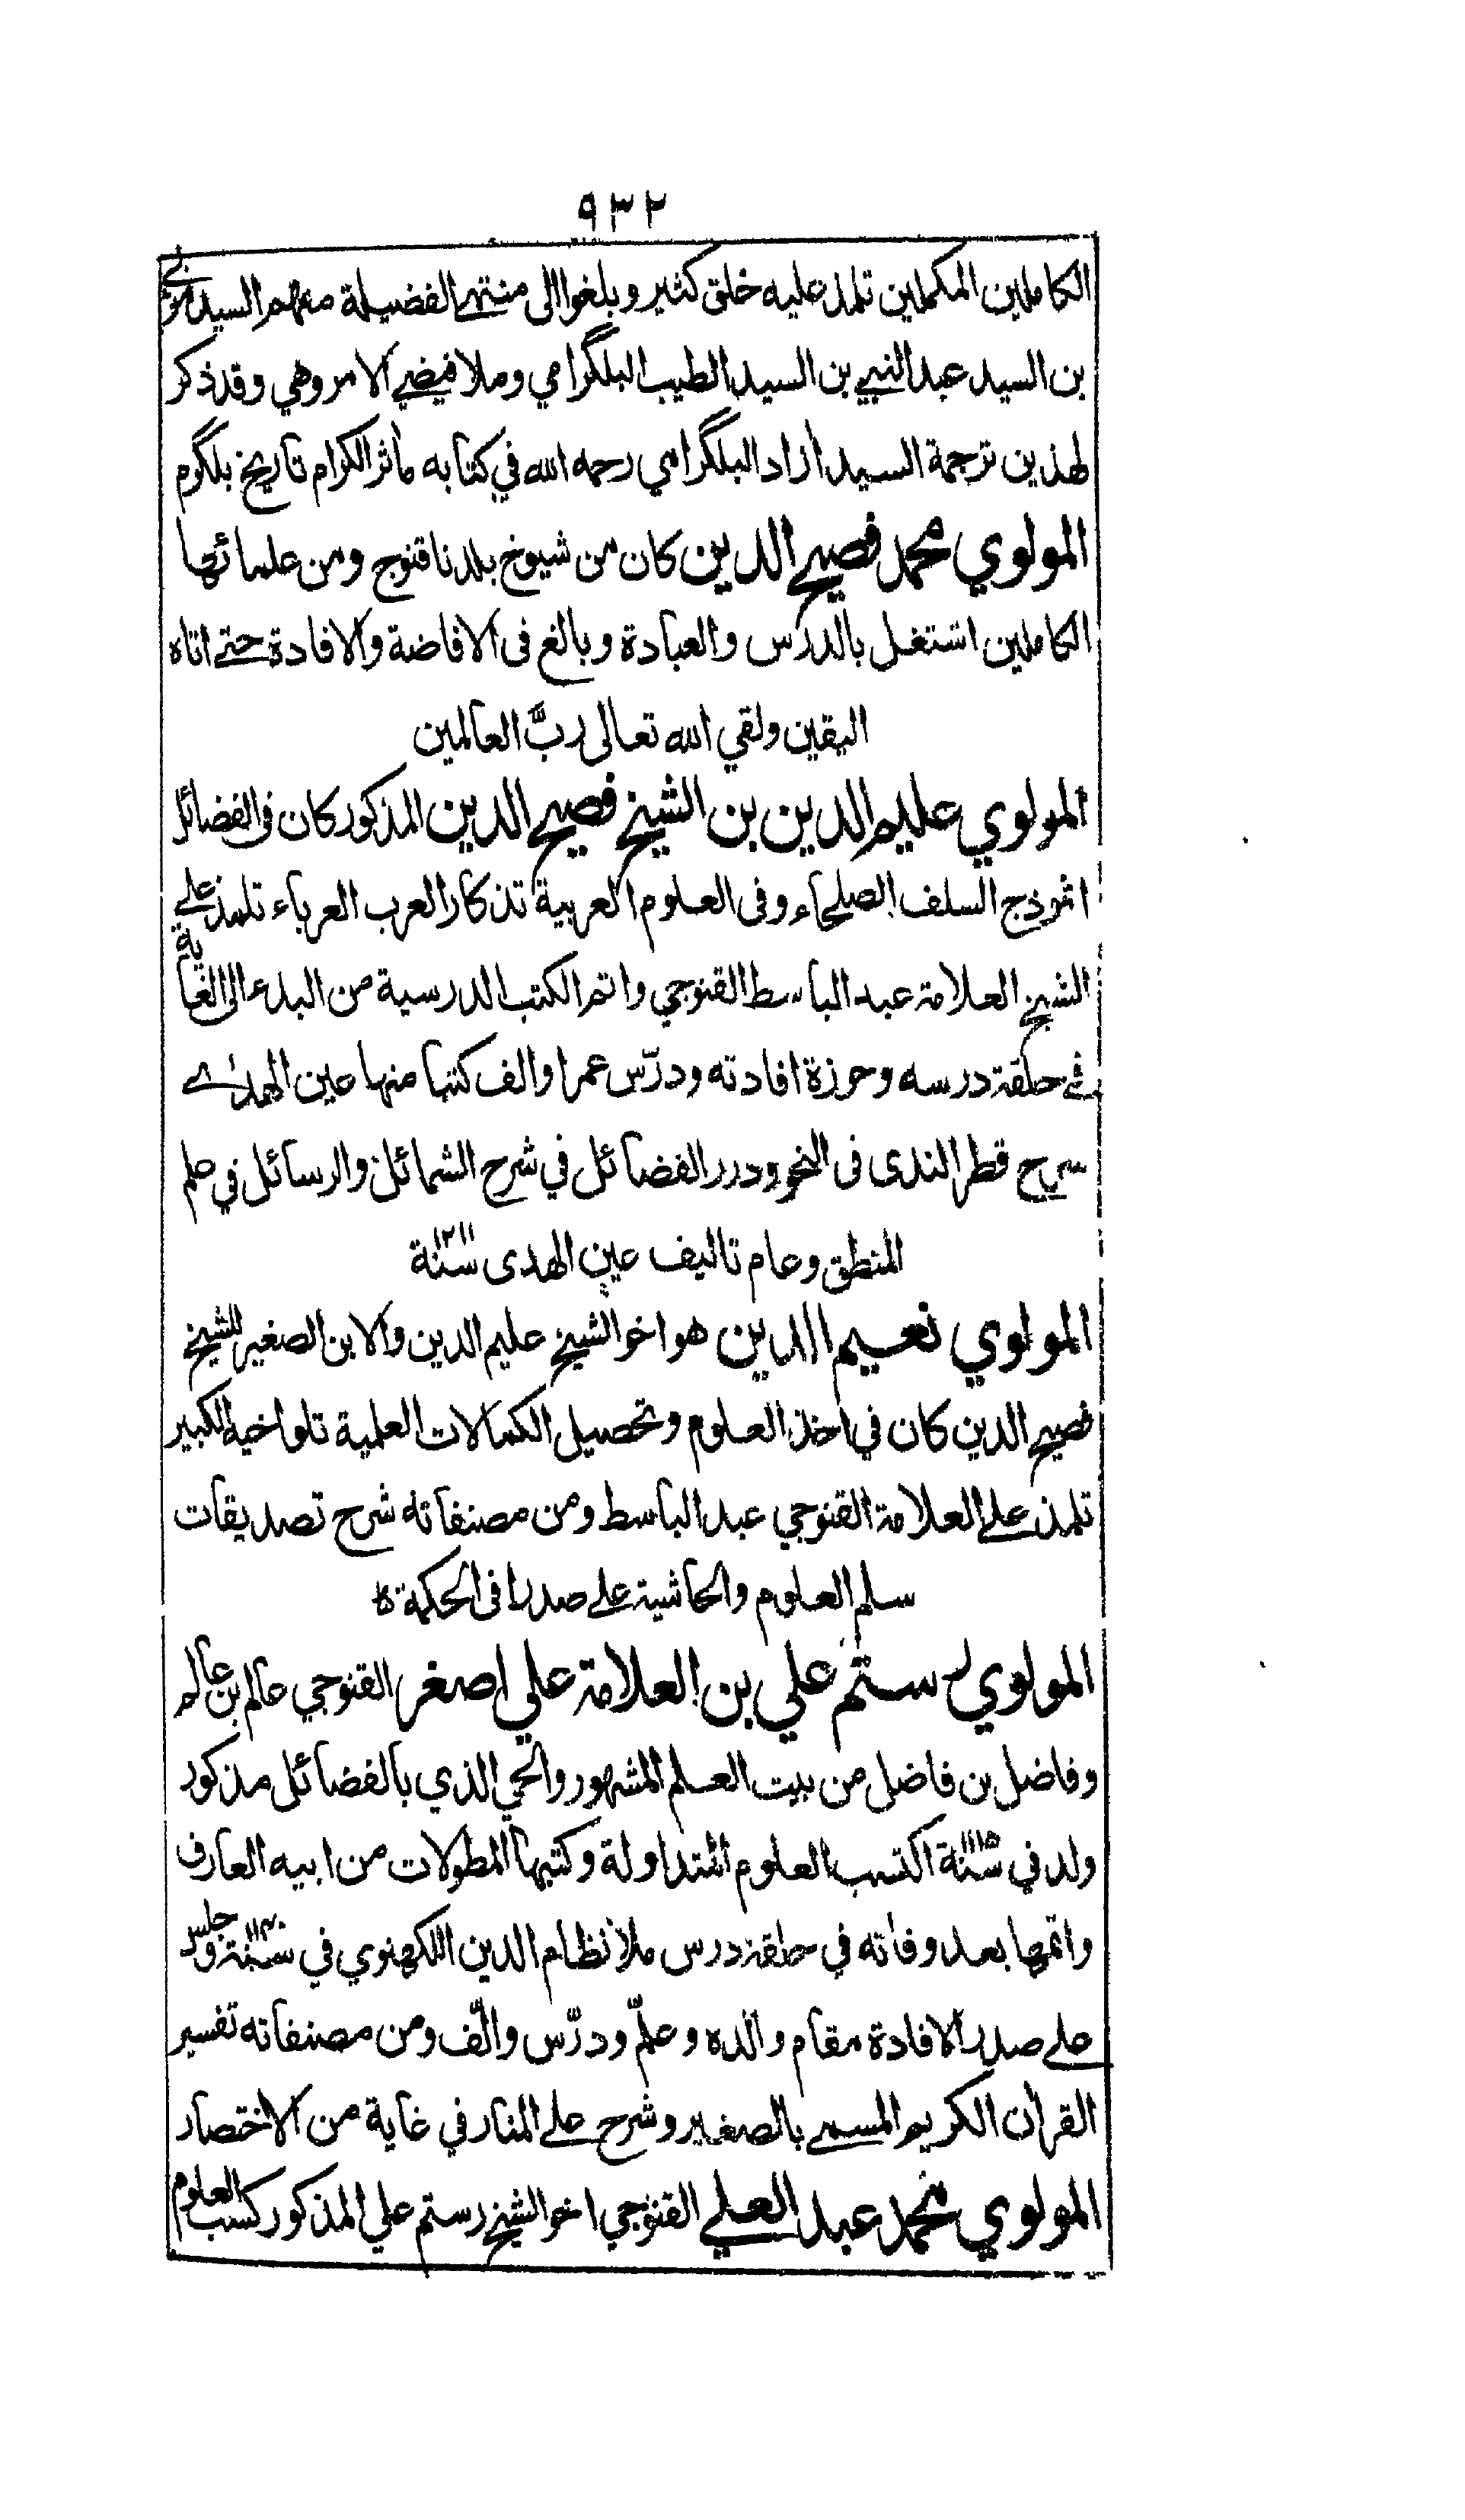 ٩٣٢
الكاملين المكملين تلمذ عليه خلق كثير وبلغوا الى منتهى الفضيلة منهم السيد مربي
بن السيد عبد النبي بن السيد الطيب البلگرامي وملا فيضي الامروهي وقد ذكر
لهذين ترجمة السيد أزاد البلگرامي رحمه الله في كتابه مأثر الكرام تاريخ بلگرم
المولوي محمد فصيح الدين كان من شيوخ بلدنا قنوج ومن علمائها
الكاملين اشتغل بالدرس والعبادة وبالغ في الافاضة والافادة حتى اتاه
اليقين ولقي الله تعالى ربَّ العالمين
المولوي عليم الدين بن الشيخ فصيح الدين المذكور كان في الفضائل
انموذج السلف الصلحاء وفى العلوم العربية تذكار العرب العرباء تلمذ على
الشيخ العلامة عبد الباسط القنوجي واتم الكتب الدرسية من البدء الى الغاية
في حلقة درسه وحوزة افادته ودرّس عمرا والف كتبا منها عين الهدى
شرح قطر الندى فى النحو ودرر الفضائل في شرح الشمائل والرسائل في علم
المنطق وعام تاليف عين الهدى سنة ١٢١١
المولوي نعيم الدين هو اخو الشيخ عليم الدين والابن الصغير للشيخ
فصيح الدين كان في اخذ العلوم وتحصيل الكمالات العلمية تلو اخيه الكبير
تلمذ على العلامة القنوجي عبد الباسط ومن مصنفاته شرح تصديقات
سلم العلوم والحاشية على صدرا في الحكمة
المولوي رستم علي بن العلامة علي اصغر القنوجي عالم بن عالم
وفاضل بن فاضل من بيت العلم المشهور والحي الذي بالفضائل مذكور
ولد في سنة ١١١٥ اكتسب العلوم المتداولة وكتبها المطولات من ابيه العارف
واتمها بعد وفاته في حلقة درس ملا نظام الدين اللكهنوي في سنة وجلس
على صدر الافادة مقام والده وعلّم ودرّس والّف ومن مصنفاته تفسير
القرأن الكريم المسمى بالصغير وشرح على المنار في غاية من الاختصار
المولوي محمد عبد العلي القنوجي اخو الشيخ رستم علي المذكور كسب العلوم